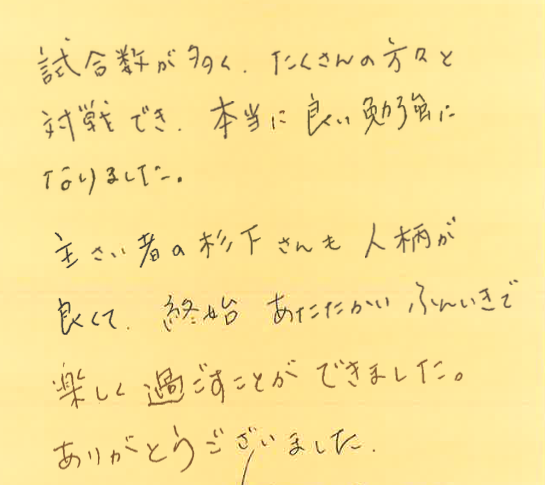 試合数が多く、たくさんの方々と
対戦でき、本当に良い勉強に
なりました。
主さい者の杉下さんも人柄が
良くて、終始あたたかいふんいきで
楽しく過ごすことができました。
ありがとうございました。